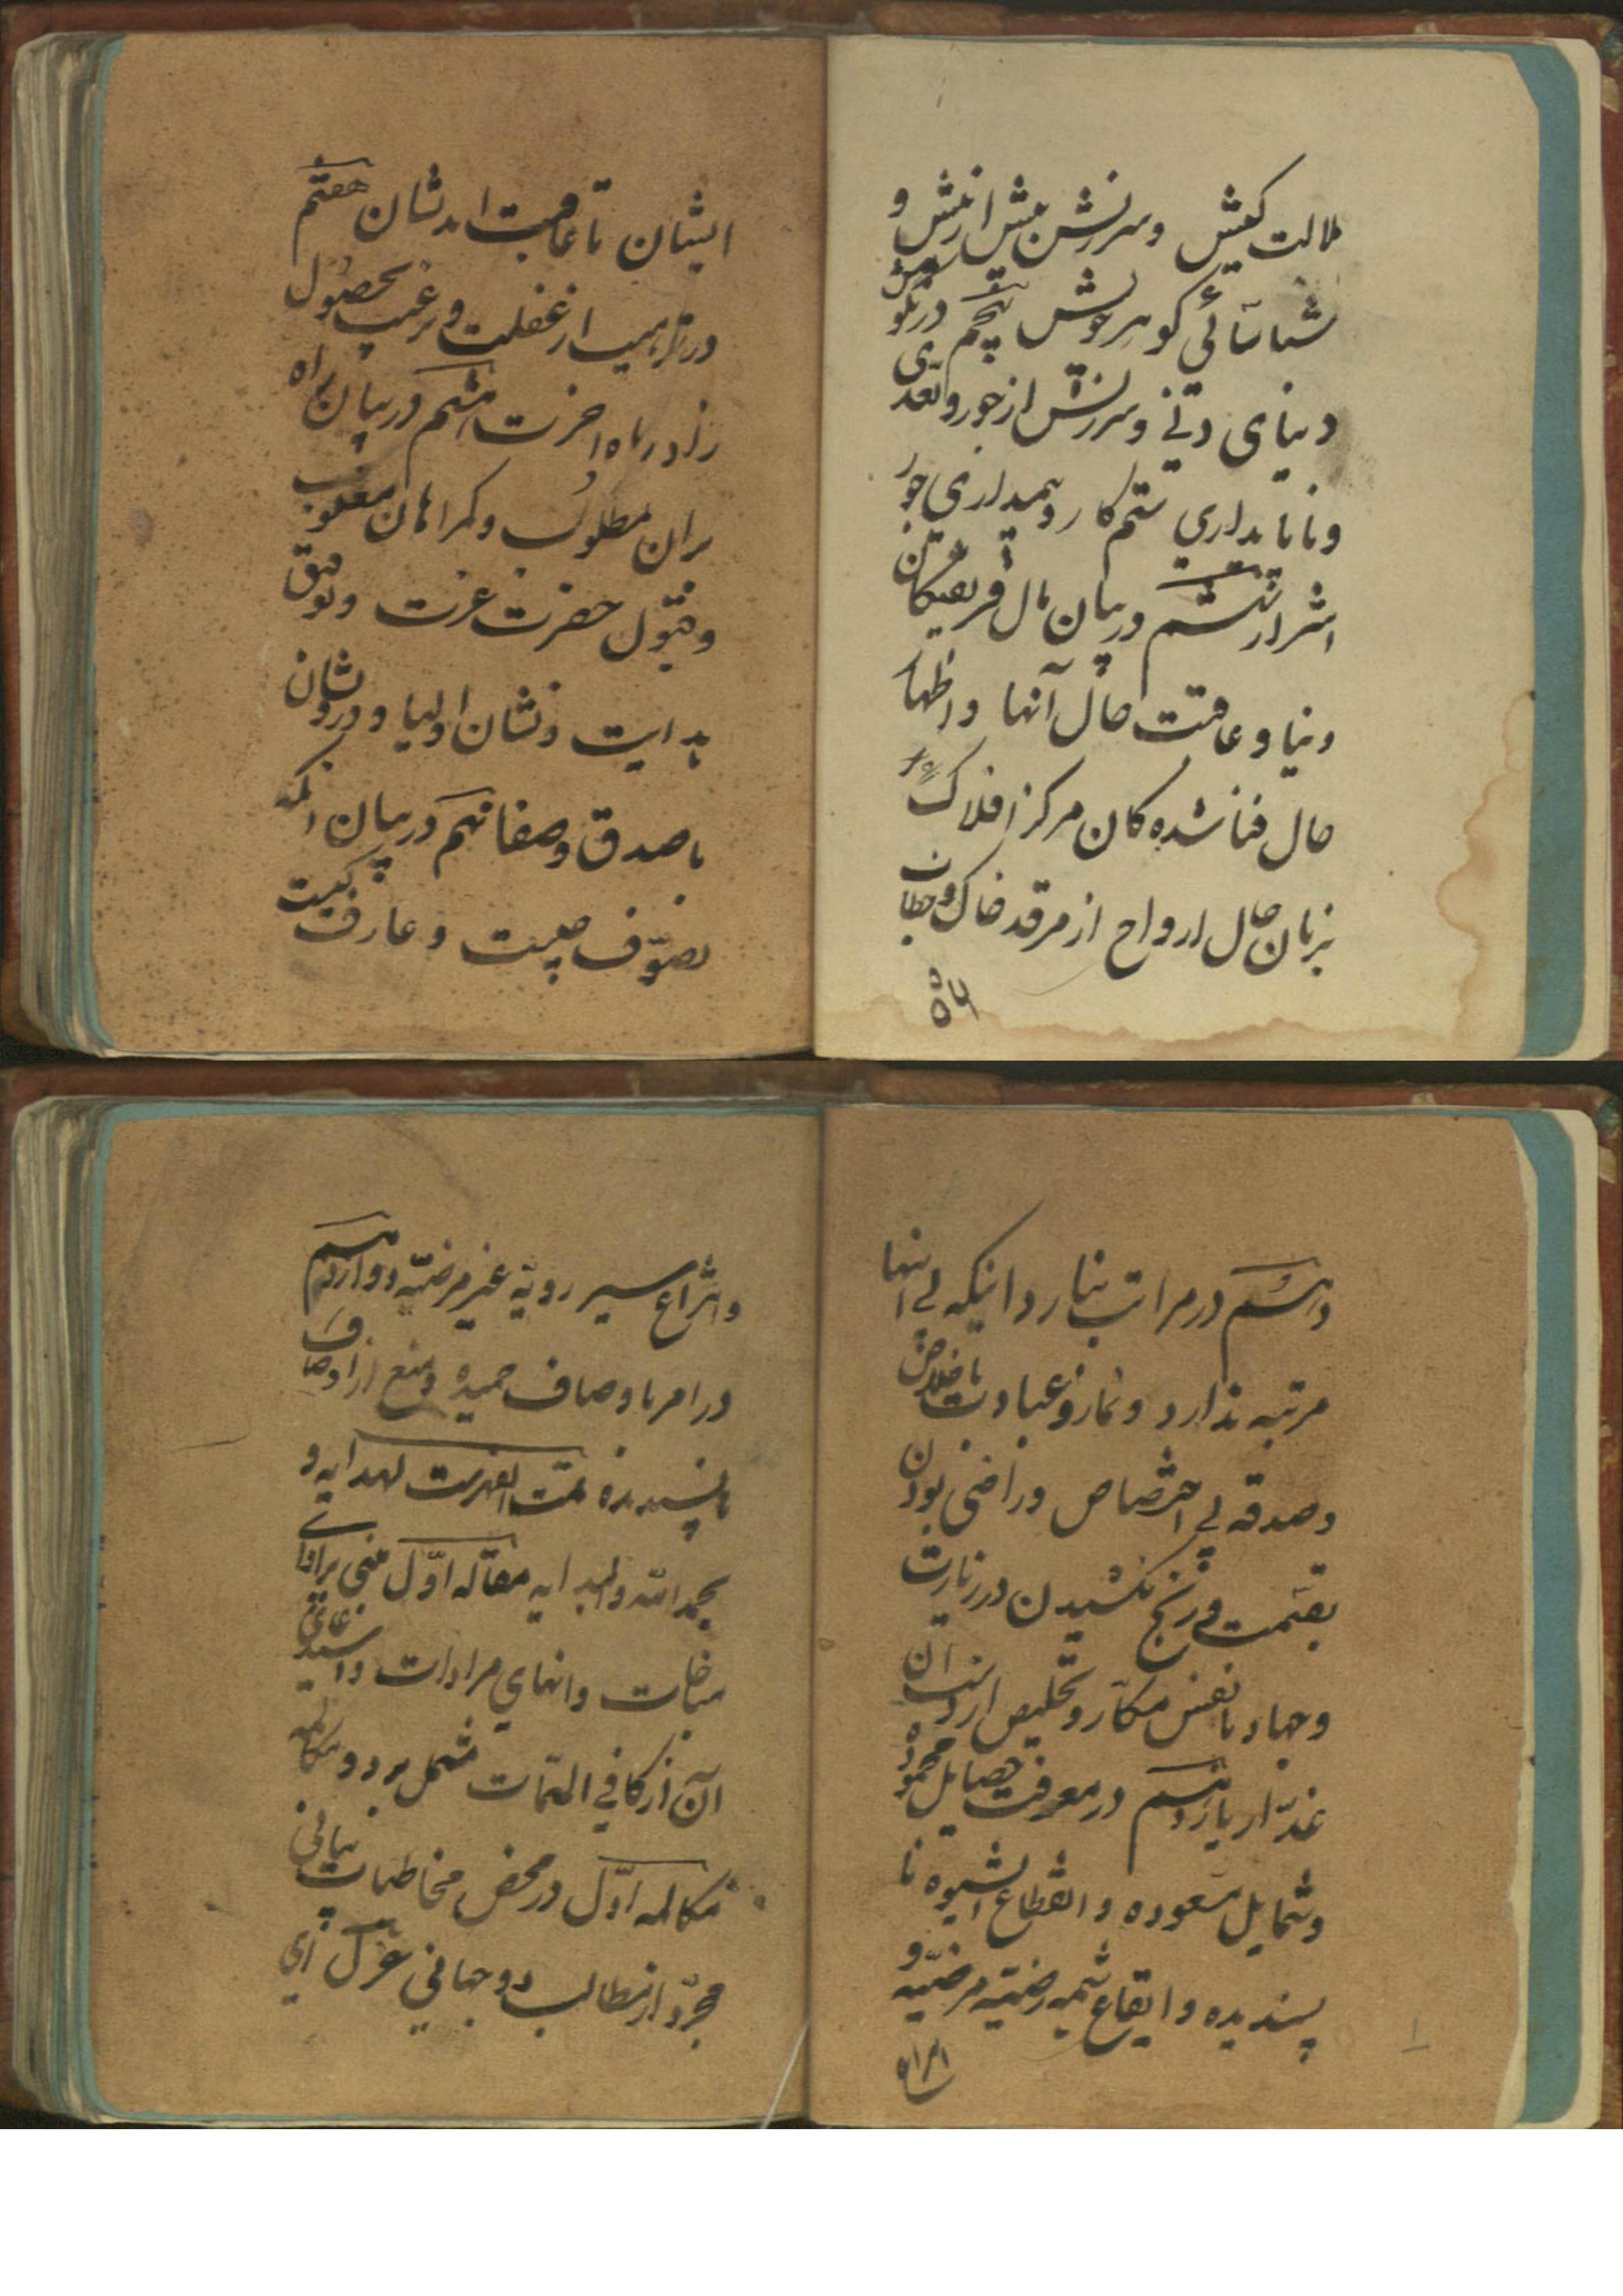 ملالت کیش و سرزنش بیش از نیش و
شناسائی گوهر خویش پنجم در نکوهش
دنیای دنی و سرزنش از جور و تعدی
و ناپایداری ستم کار و بیمداری جور
اشرار ششم در بیان مال فریفتگان
دنیا و عاقبت حال آنها و اظهار
حال فنا شده کان مرکز افلاک
بزبان حال ارواح از مرقد خاک و خطاب
ایشان تا عاقبت اندیشان هفتم
در ترهیب از غفلت و ترغیب بحصول
زاد در راه آخرت هشتم در بیان راه
بران مطلوب و کمراهان مغلوب
و قبول حضرت عزت و توفیق
هدایت و نشان اولیا و درویشان
با صدق و صفا نهم در بیان آنکه
تصوّف چیست و عارف کیست
دهم در مراتب بنارد اینکه بی انتها
مرتبه ندارد و نماز و عبادت باخلاص
و صدقه بی اختصاص و راضی بودن
بقسمت و رنج نکشیدن در زیارت
و جهاد با نفس مکار و تخلیص از دست آن
غدّار یازدهم در معرفت خصایل محموده
و شمایل مسعوده و انقطاع الشیوه نا
پسندیده و ایقاع شیمه رضیّه مرضیّه و
و انتزاع سیر رویّه غیر مرضیّه دوازدهم
در امر باوصاف حمیده و منع از اوصاف
ناپسندیده تمت الفهرست لهدایه و
بحمد الله و لهدایه مقاله اوّل مبنی بر ادای
مناجات و انهای مراداتِ
آن از کافی المهمّات مشتمل بر دو مکالمه
مکالمه اوّل در محض مخاطبات بیانی
مجرّد از مطالب دو جهانی غزل ای